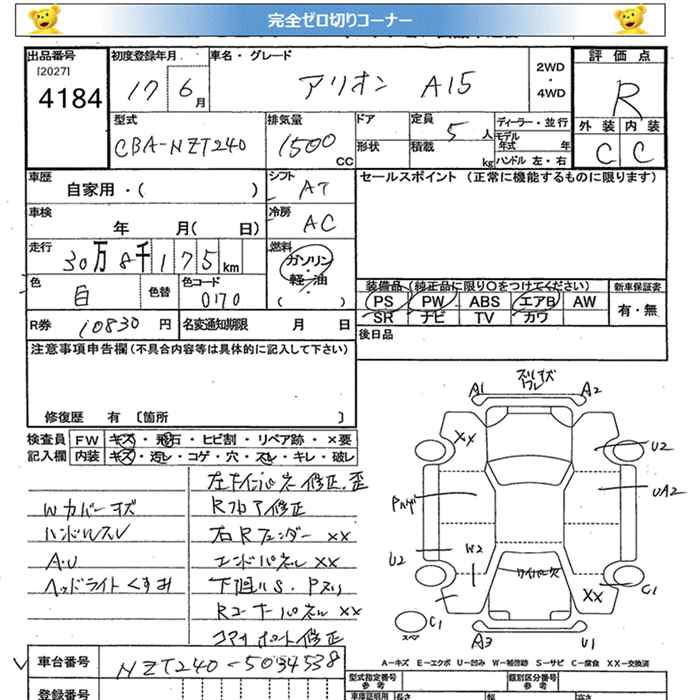 完全ゼロ切りコーナー
出品番号 初度登録年月 車名・グレード 評価点
[2027]
4184 17 6月 アリオン A15 2WD・4WD R
型式 排気量 ドア 定員 5人 ディーラー・並行
モデル年式 年
外装 内装
CBA-NZT240 1500CC 形状 積載 kg ハンドル 左・右 C C
車歴 自家用・( ) シフト AT セールスポイント (正常に機能するものに限ります)
車検 年 月( 日) 冷房 AC
走行 30万8千175km 燃料 ガソリン・軽・油 ( )
色 白 色替 色コード 070
装備品 (純正品に限り〇をつけてください) 新車保証書
PS PW ABS エアB AW 有・無
SR ナビ TV カワ
R券 10830円 名変通知期限 月 日 後日品
注意事項申告欄(不具合内容等は具体的に記入して下さい)
修復歴 有 〔箇所 〕
検査員記入欄 FW キズ・飛石・ヒビ割・リペア跡・×要
内装 キズ・汚レ・コゲ・穴・スレ・キレ・破レ
Rフロア修正
Wカバーキズ
ハンドルスレ 右Rフェンダー XX
A・U エンドパネル XX
ヘッドライトくすみ 下廻りS・Pスリ
Rコーナーパネル XX
修正
A1 A2
XX U2
UA2
U2 W2
ワイパー欠
XX C1
C1
スペア
A3 U1
A－キズ E－エクボ U－凹み W－補修跡 S－サビ C－腐食 XX－交換済
車台番号 NZT240-5034538
登録番号
型式指定番号 参考 類別区分番号 参考
車庫証明用 長さ 幅 高さ